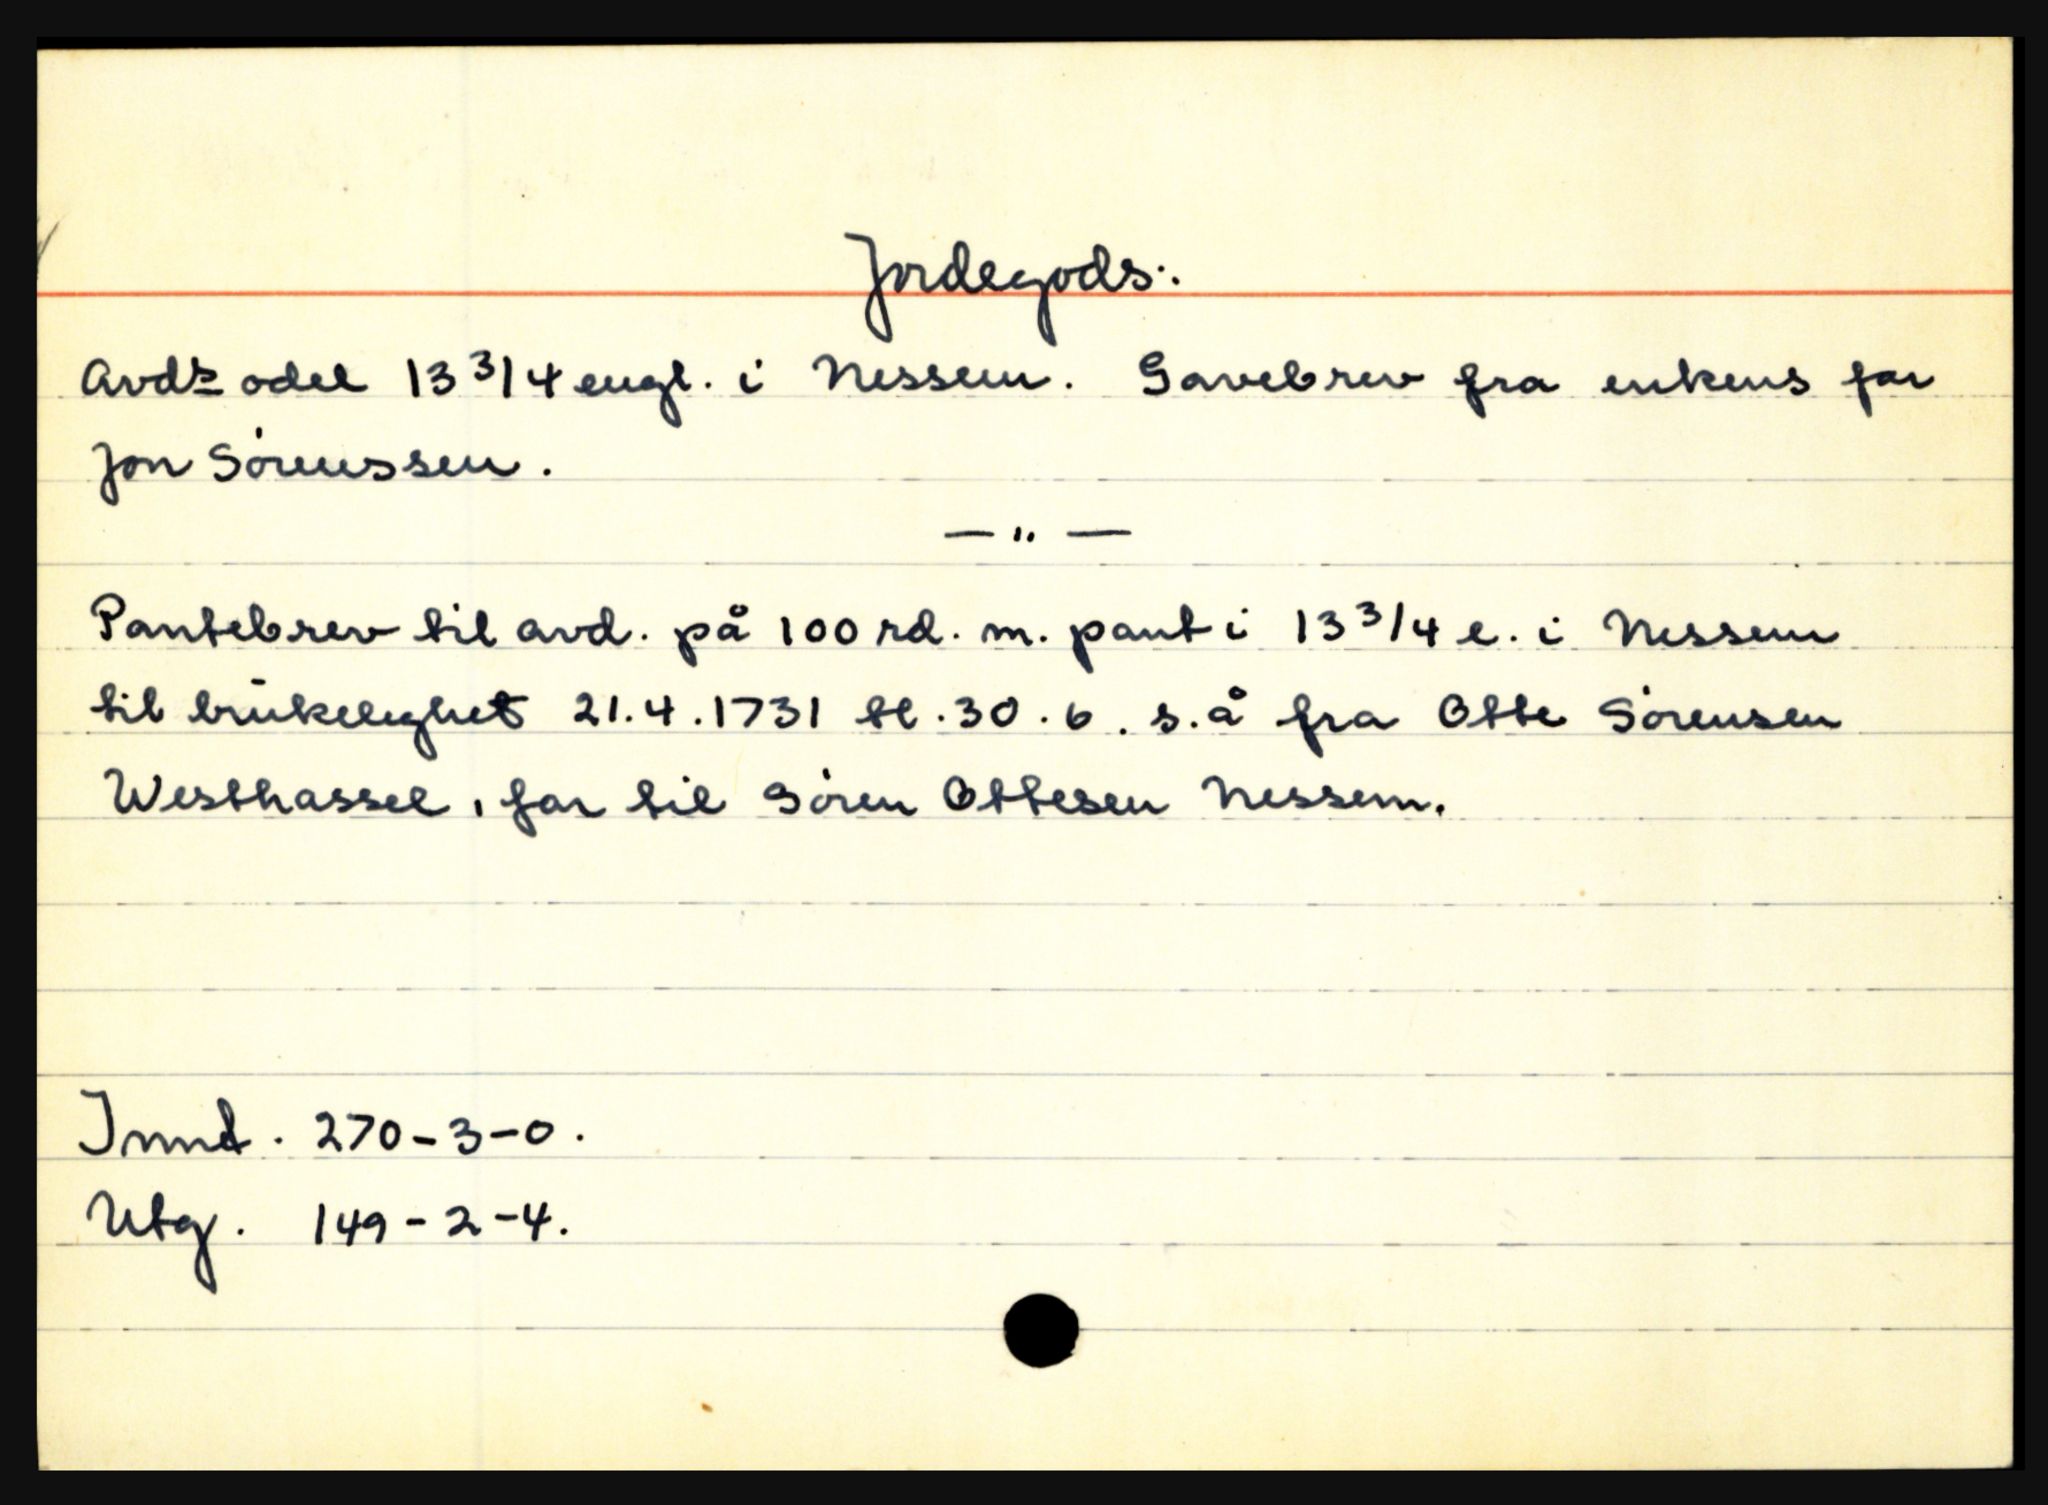 Jordegods:.
Avds odel 13 3/4 engl. i Nessem. Gavebrev fra enkens far
Jon Sörenssen.
— " —
Pantebrev til avd. på 100 rd. m. pant i 13 3/4 e. i Nessem
til brukelighet 21.4.1731 tl. 30.6. s.å fra Otte Sörensen
Westhassel, far til Sören Ottesen Nessem.
Innt. 270-3-0.
Utg. 149-2-4.